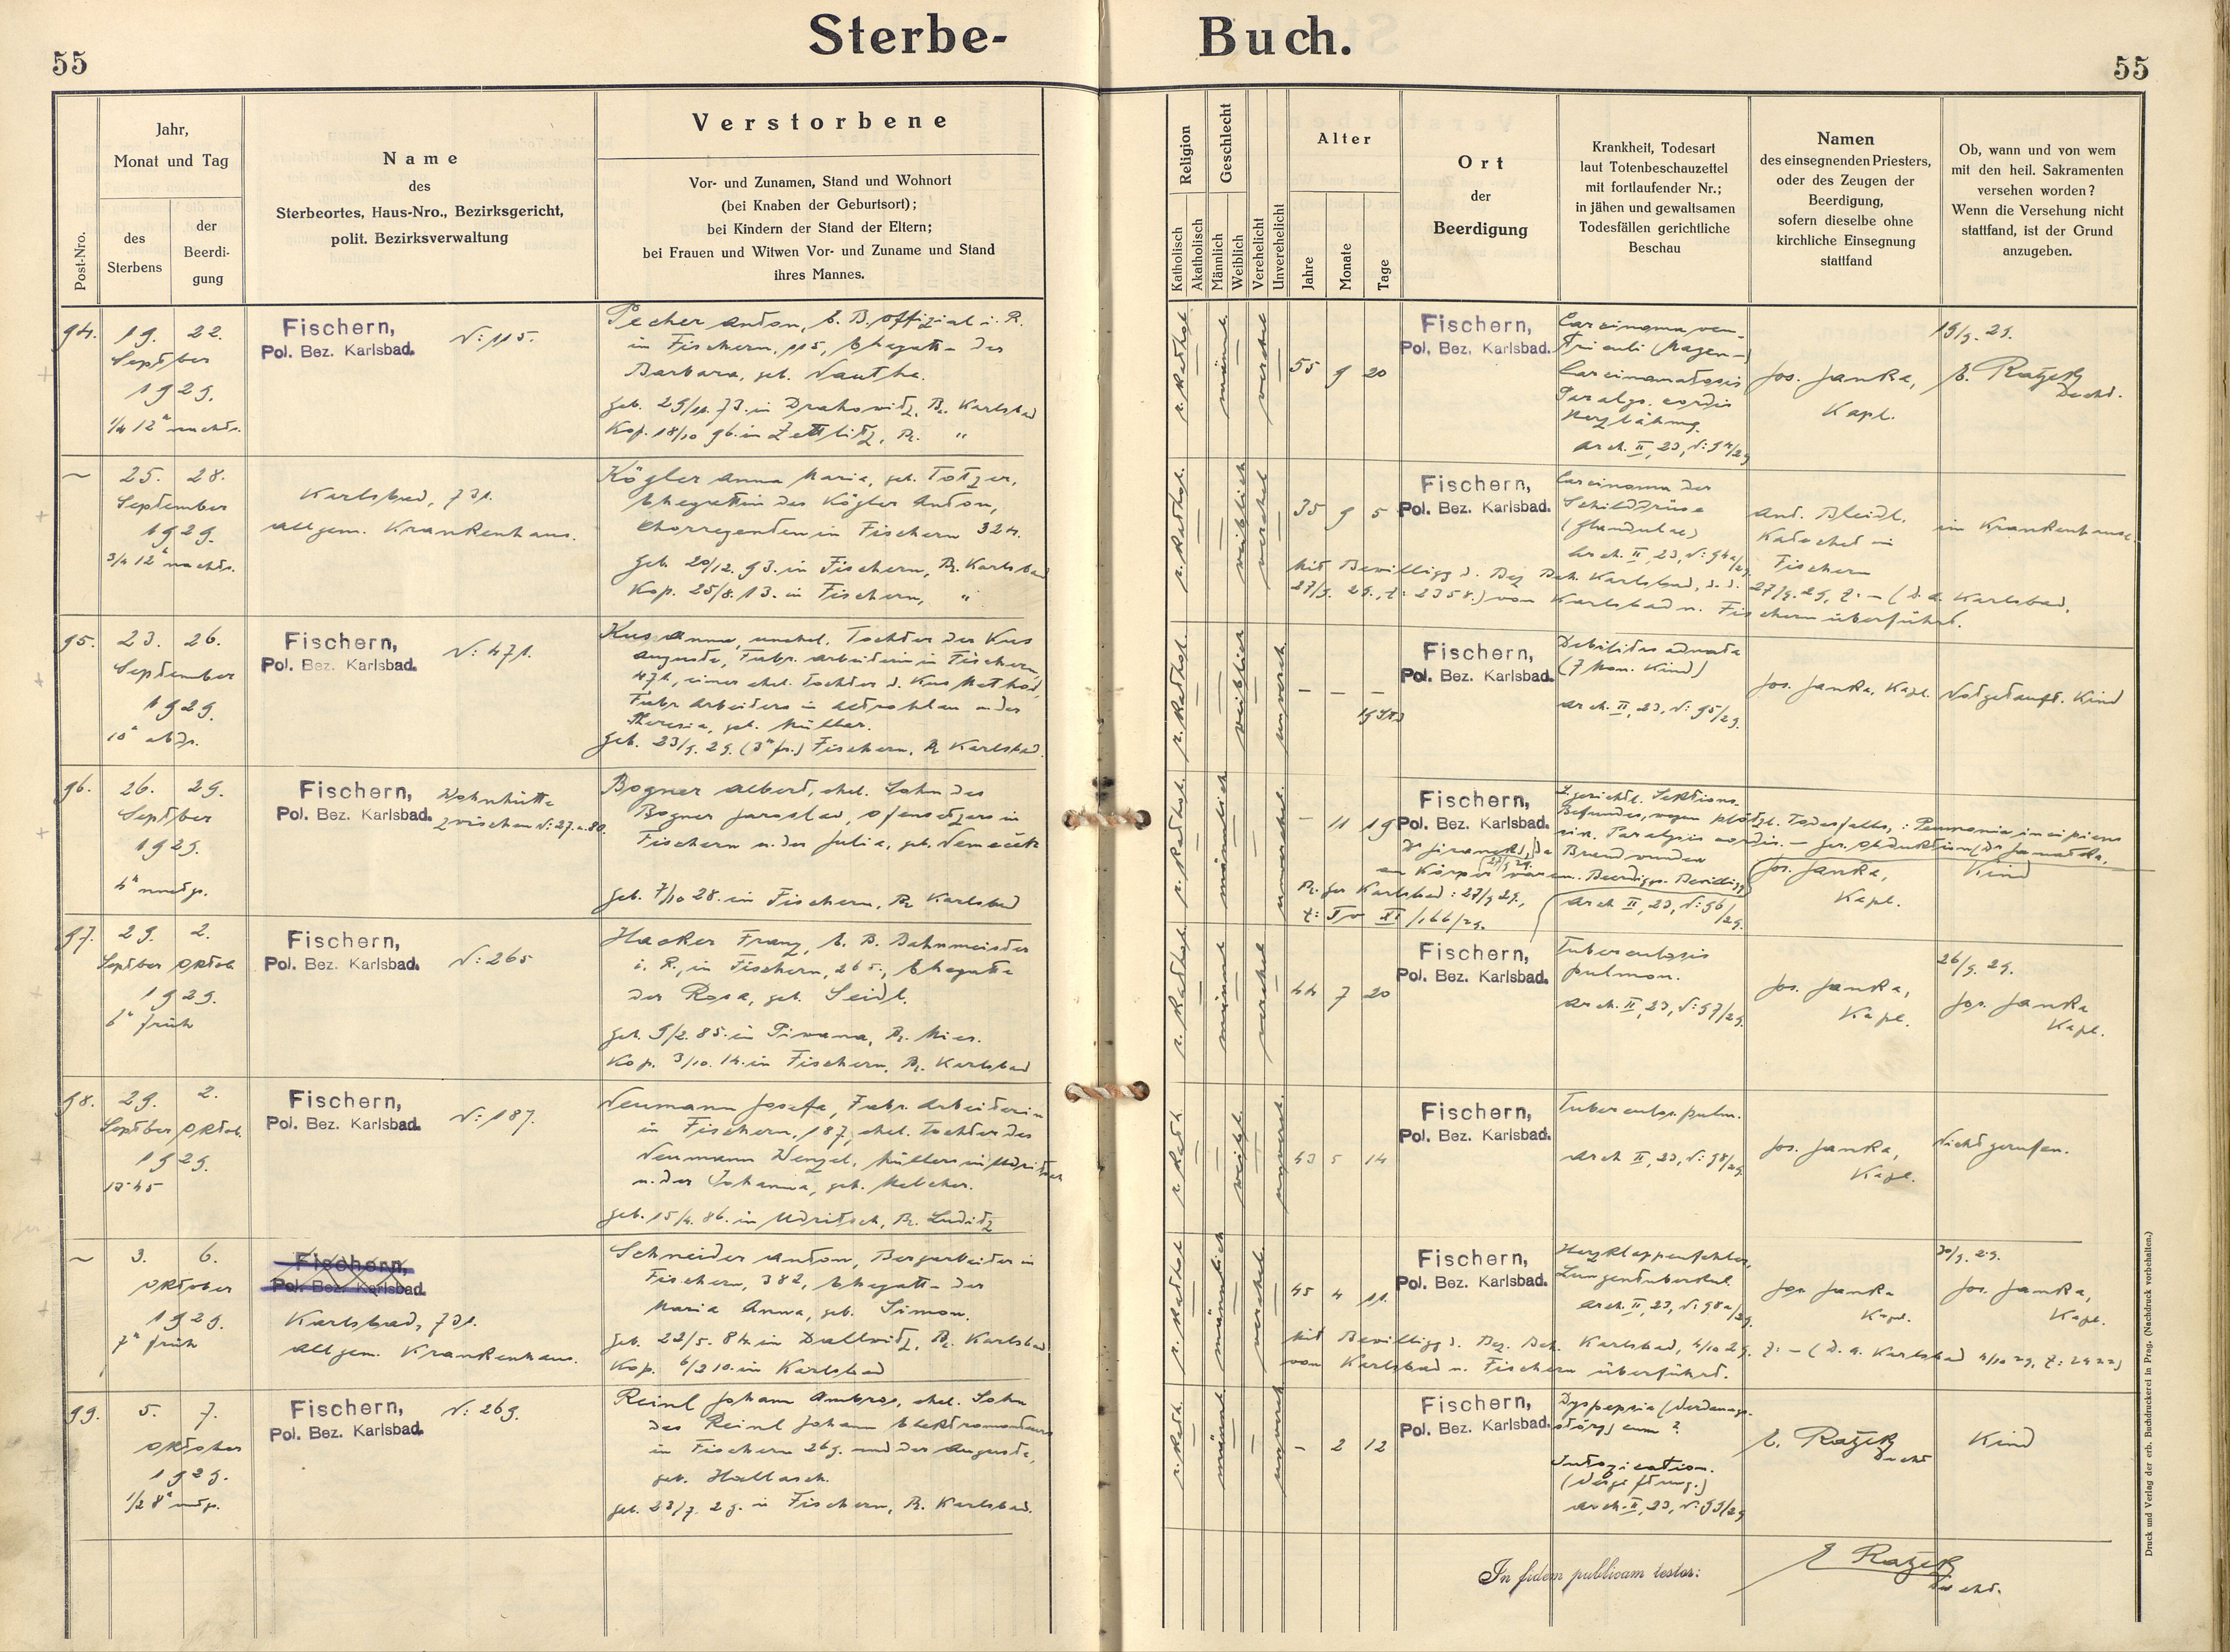 55
Sterbe-
Buch.
55
Jahr,
Monat und Tag
Post-Nro.
des
Sterbens
der
Beerdi-
gung
Name
des
Sterbeortes, Haus-Nro., Bezirksgericht,
polit. Bezirksverwaltung
Verstorbene
Vor- und Zunamen, Stand und Wohnort
(bei Knaben der Geburtsort);
bei Kindern der Stand der Eltern;
bei Frauen und Witwen Vor- und Zuname und Stand
ihres Mannes.
Religion
Katholisch
Akatholisch
Geschlecht
Männlich
Weiblich
Verehelicht
Unverehelicht
Alter
Jahre
Monate
Tage
Ort
der
Beerdigung
Krankheit, Todesart
laut Totenbeschauzettel
mit fortlaufender Nr.;
in jähen und gewaltsamen
Todesfällen gerichtliche
Beschau
Namen
des einsegnenden Priesters,
oder des Zeugen der
Beerdigung,
sofern dieselbe ohne
kirchliche Einsegnung
stattfand
Ob, wann und von wem
mit den heil. Sakramenten
versehen worden?
Wenn die Versehung nicht
stattfand, ist der Grund
anzugeben.
94.
19. 22.
Septber
1929.
1/4 12h nachts.
Fischern,
Pol. Bez. Karlsbad.
N: 115.
Pecher Anton, k. B. Offizial i. R.
in Fischern, 115, Ehegatte der
Barbara, geb. Nautha.
geb. 29/11. 73. in Drahowitz, Bz. Karlsbad
Kop. 18/10 96. in Zettlitz, Bz. "
r. Kathol.
männl.
verehel
55 9 20
Fischern,
Pol. Bez. Karlsbad.
Carcinoma ven-
triculi (Magen-)
Carcinomatosis
Paralys. cordis
Herzlähmg.
Arch. II, 23, N: 94/29
Jos. Janka,
Kapl.
19/9. 29.
E. Ratzek
Decht.
~
25. 28.
September
1929.
3/4 12h nachts.
Karlsbad, 731.
Allgem. Krankenhaus.
Kögler Anna Maria, geb. Totzer,
Ehegattin des Kögler Anton,
Chorregenten in Fischern 324.
geb. 20/12. 93. in Fischern, Bz. Karlsbad
Kop. 25/8. 13. in Fischern, "
r. Kathol.
weiblich
verehel
35 9 5
Fischern,
Pol. Bez. Karlsbad.
Carcinoma der
Schilddrüse
(Glandulae)
Arch. II, 23, N: 94a/29.
Ant. Bleidl.
Katechet in
Fischern
im Krankenhause.
Mit Bewilligg d. Bez. Beh. Karlsbad, d. d. 27/9. 29, Z: — (d. a. Karlsbad,
27/9. 29., Z: 2358.) von Karlsbad n. Fischern überführt.
95.
23. 26.
September
1929.
10h abds.
Fischern,
Pol. Bez. Karlsbad.
N: 471.
Kus Anna, unehel. Tochter der Kus
Auguste, Fabr. Arbeiterin in Fischern
471, einer ehel. Tochter d. Kus Method,
Fabr. Arbeiters in Altrohlau u. der
Theresia, geb. Müller.
geb. 23/9. 29. (3h fr.) Fischern, Bz Karlsbad.
r. Kathol.
weiblich
unvereh.
– – –
19 Std
Fischern,
Pol. Bez. Karlsbad.
Debilitas adnata
(7 Mon. Kind)
Arch. II, 23, N: 95/29.
Jos. Janka, Kapl.
Notgetauft. Kind
96.
26. 29.
Septber
1929.
4h nmtgs.
Fischern,
Pol. Bez. Karlsbad.
Wohnhütte
zwischen N: 27. u. 80.
Bogner Albert, ehel. Sohn des
Bogner Jaroslav, Ofensetzers in
Fischern u. der Julia, geb. Nemeček
geb. 7/10 28. in Fischern, Bz Karlsbad
r. Kathol.
männlich
unverehel.
– 11 19
Fischern,
Pol. Bez. Karlsbad.
L. gerichtl. Sektions-
Befundes, wegen plötzl. Todesfalls, : Pneumonia incipiens
Paralysis cordis. — ger. Obduktion
Brandwunden
am Körper waren. Beerdiggs. Bewilligg
Bz. ger Karlsbad : 27/9 29.,
Arch II, 23, N: 96/29.
Jos. Janka,
Kapl.
Kind
97.
29. 2.
Septber Oktob.
1929.
6h früh
Fischern,
Pol. Bez. Karlsbad.
N: 265
Hacker Franz, k. B. Bahnmeister
i. R., in Fischern, 265., Ehegatte
der Rosa, geb. Seidl.
geb. 9/2. 85. in Piwana, Bz. Mies.
Kop. 3/10. 14. in Fischern, Bz. Karlsbad
r. Kathol
männl
verehel
44 7 20
Fischern,
Pol. Bez. Karlsbad.
Tuberculosis
pulmon.
Arch. II, 23, N: 97/29.
Jos. Janka,
Kapl.
26/9. 29.
Jos. Janka
Kapl.
98.
29. 2.
Septber Oktob.
1929.
Fischern,
Pol. Bez. Karlsbad.
N: 187.
Neumann Josefa, Fabr. Arbeiterin
in Fischern, 187, ehel. Tochter des
Neumann Wenzel, Müllers in Udritsch
u. der Johanna, geb. Melcher.
geb. 15/4. 86. in Udritsch, Bz. Luditz
r. Kath.
weibl.
unvereh.
43 5 14
Fischern,
Pol. Bez. Karlsbad.
Tuberculos. pulm.
Arch II, 23, N: 98/29.
Jos. Janka,
Kapl.
Nicht gerufen.
~
3. 6.
Oktober
1929.
7h früh
Fischern,
Pol. Bez. Karlsbad.
Karlsbad, 731.
Allgem. Krankenhaus.
Schneider Anton, Bergarbeiter in
Fischern, 382, Ehegatte der
Maria Anna, geb. Simon.
geb. 22/5. 84. in Dallwitz, Bz. Karlsbad
Kop. 6/2 10. in Karlsbad
r. Kathol
männlich
verehel.
45 4 11.
Fischern,
Pol. Bez. Karlsbad.
Herzklappenfehler,
Lungentuberkul.
Arch. II, 23, N: 98a/29.
Jos. Janka
Kapl.
30/9. 29.
Jos. Janka,
Kapl.
Mit Bewilligg d. Bez. Beh. Karlsbad, 4/10 29. Z: — (d. a. Karlsbad 4/10 29, Z: 2422)
von Karlsbad n. Fischern überführt.
99.
5. 7.
Oktober
1929.
1/2 8h mgs.
Fischern,
Pol. Bez. Karlsbad.
N: 269.
Reinl Johann Ambros, ehel. Sohn
des Reinl Johann Elektromonteurs
in Fischern 269. und der Auguste,
geb. Hallasch.
geb. 23/7. 29. in Fischern, Bz. Karlsbad.
r. Kath.
männl
unvereh
– 2 12
Fischern,
Pol. Bez. Karlsbad.
Dyspepsia (Verdauugs-
störg) cum ?
Intoxication.
(Vergiftung.)
Arch. II, 23, N: 99/29
E. Ratzek
Decht
Kind
In fidem publicam testor:
E Ratzek
Decht.
Druck und Verlag der erb. Buchdruckerei in Prag. (Nachdruck vorbehalten.)